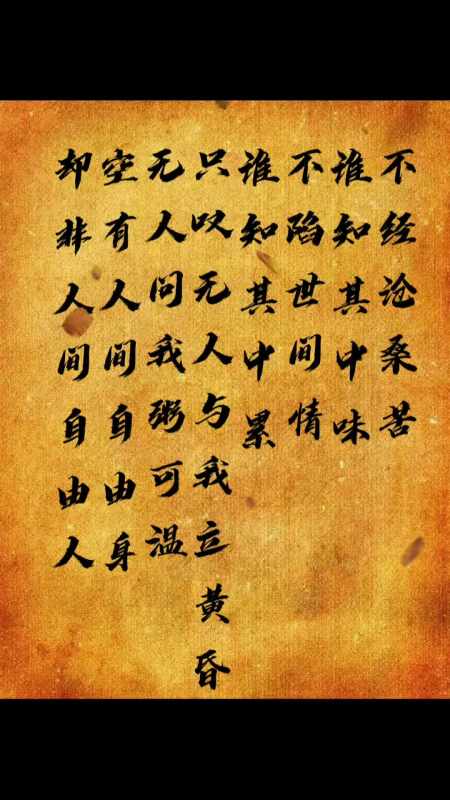 不经沧桑苦
谁知其中味
不陷世间情
谁知其中累
只叹无人与我立黄昏
无人问我粥可温
空有人间自由身
却非人间自由人